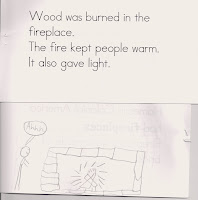 Wood was burned in the
fireplace.
The fire kept people warm.
It also gave light.
Ahhh